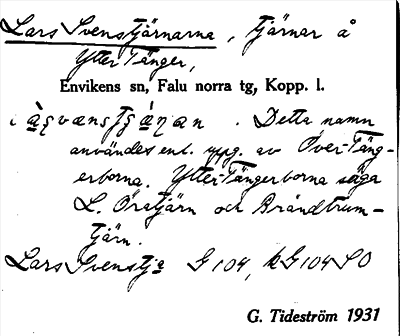 Lars Svenstjärnarna, tjärnar å
Ytter Tänger,
Envikens sn, Falu norra tg, Kopp. l.
Detta namn
användes enl. uppg. av Över-Täng-
erborna. Ytter-Tängerborna säga
L. Öratjärn och Brändtrum-
tjärn.
Lars Svenstjä G 104, kG 104 SO
G. Tideström 1931